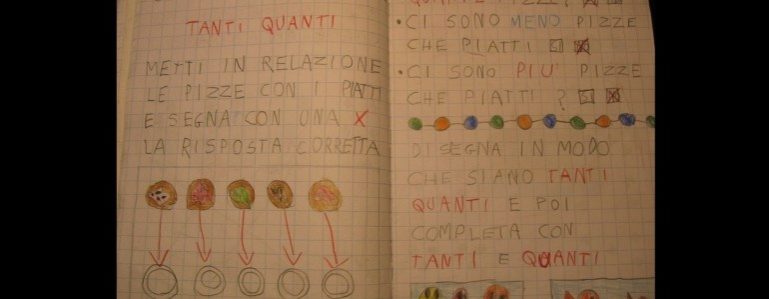 TANTI QUANTI
METTI IN RELAZIONE
LE PIZZE CON I PIATTI
E SEGNA CON UNA X
LA RISPOSTA CORRETTA
PIZZE?
• CI SONO MENO PIZZE
CHE PIATTI
• CI SONO PIU' PIZZE
CHE PIATTI?
DISEGNA IN MODO
CHE SIANO TANTI
QUANTI E POI
COMPLETA CON
TANTI E QUANTI